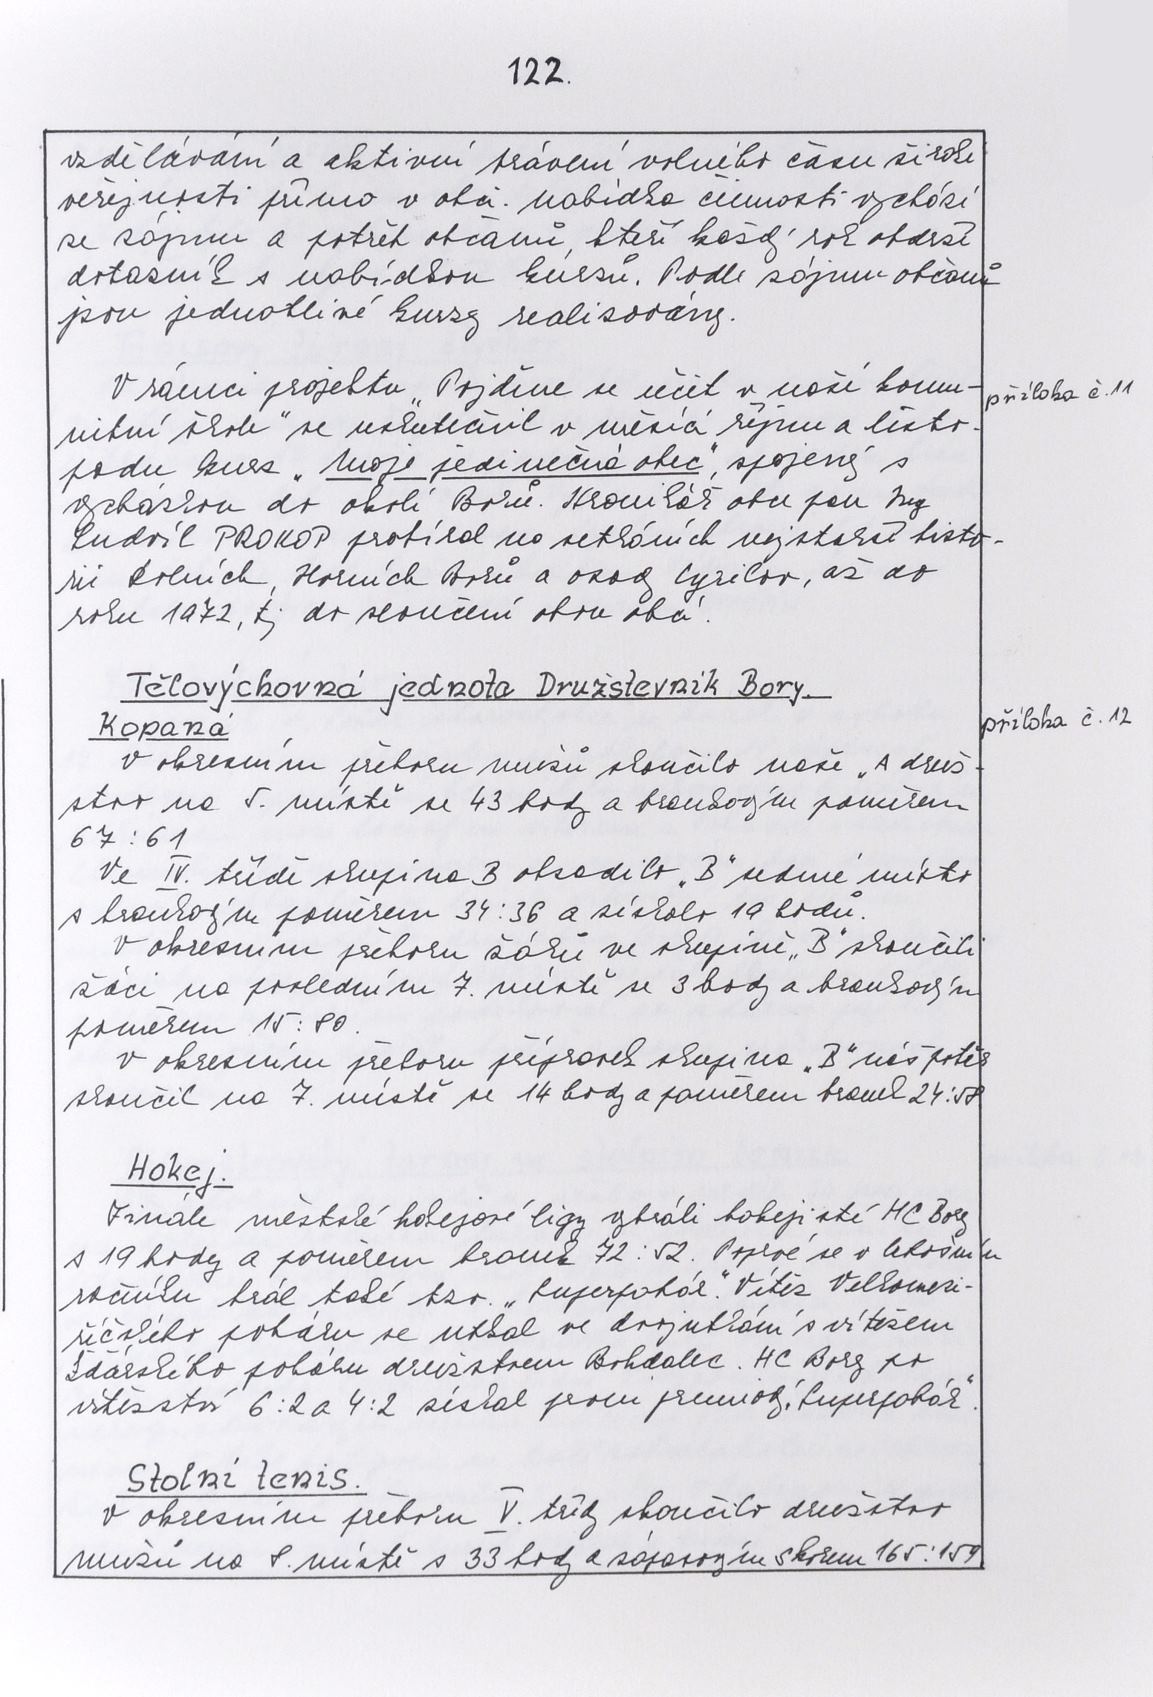 122.
vzdělávání a aktivní trávení volného času široké
veřejnosti přímo v obci. Nabídka činnosti vychází
ze zájmu a potřeb občanů, kteří každý rok obdrží
dotazník s nabídkou kurzů. Podle zájmu občanů
jsou jednotlivé kurzy realizovány.
V rámci projektu „Pojďme se učit v naší komu-
příloha č. 11
nitní škole" se uskutečnil v měsíci říjnu a listo-
padu kurz „Moje jedinečná obec", spojený s
vycházkou do okolí Borů. Kronikář obce pan Ing
Ludvík PROKOP probíral na setkáních nejstarší histo-
rii Dolních, Horních Borů a osady Cyrilov, až do
roku 1972, tj do sloučení obou obcí.
Tělovýchovná jednota Družstevník Bory.
Kopaná
příloha č. 12
V okresním přeboru mužů skončilo naše „A druž-
stvo na 5. místě se 43 body a brankovým poměrem
67:61
Ve IV. třídě skupina B obsadilo „B" sedmé místo
s brankovým poměrem 34:36 a získalo 19 bodů.
V okresním přeboru žáků ve skupině „B" skončili
žáci na posledním 7. místě se 3 body a brankovým
poměrem 15:80.
V okresním přeboru přípravek skupina „B" náš potěr
skončil na 7. místě se 14 body a poměrem branek 24:58
Hokej.
Finále městské hokejové ligy vyhráli hokejisté HC Bory
s 19 body a poměrem branek 72:52. Poprvé se v letošním
ročníku hrál také tzv. „Superpohár". Vítěz Velkomezi-
říčského poháru se utkal ve dvojutkání s vítězem
Žďárského poháru družstvem Bohdalec. HC Bory po
vítězství 6:2 a 4:2 získal první premiový „Superpohár".
Stolní tenis.
V okresním přeboru V. třídy skončilo družstvo
mužů na 8. místě s 33 body a zápasovým skórem 165:159